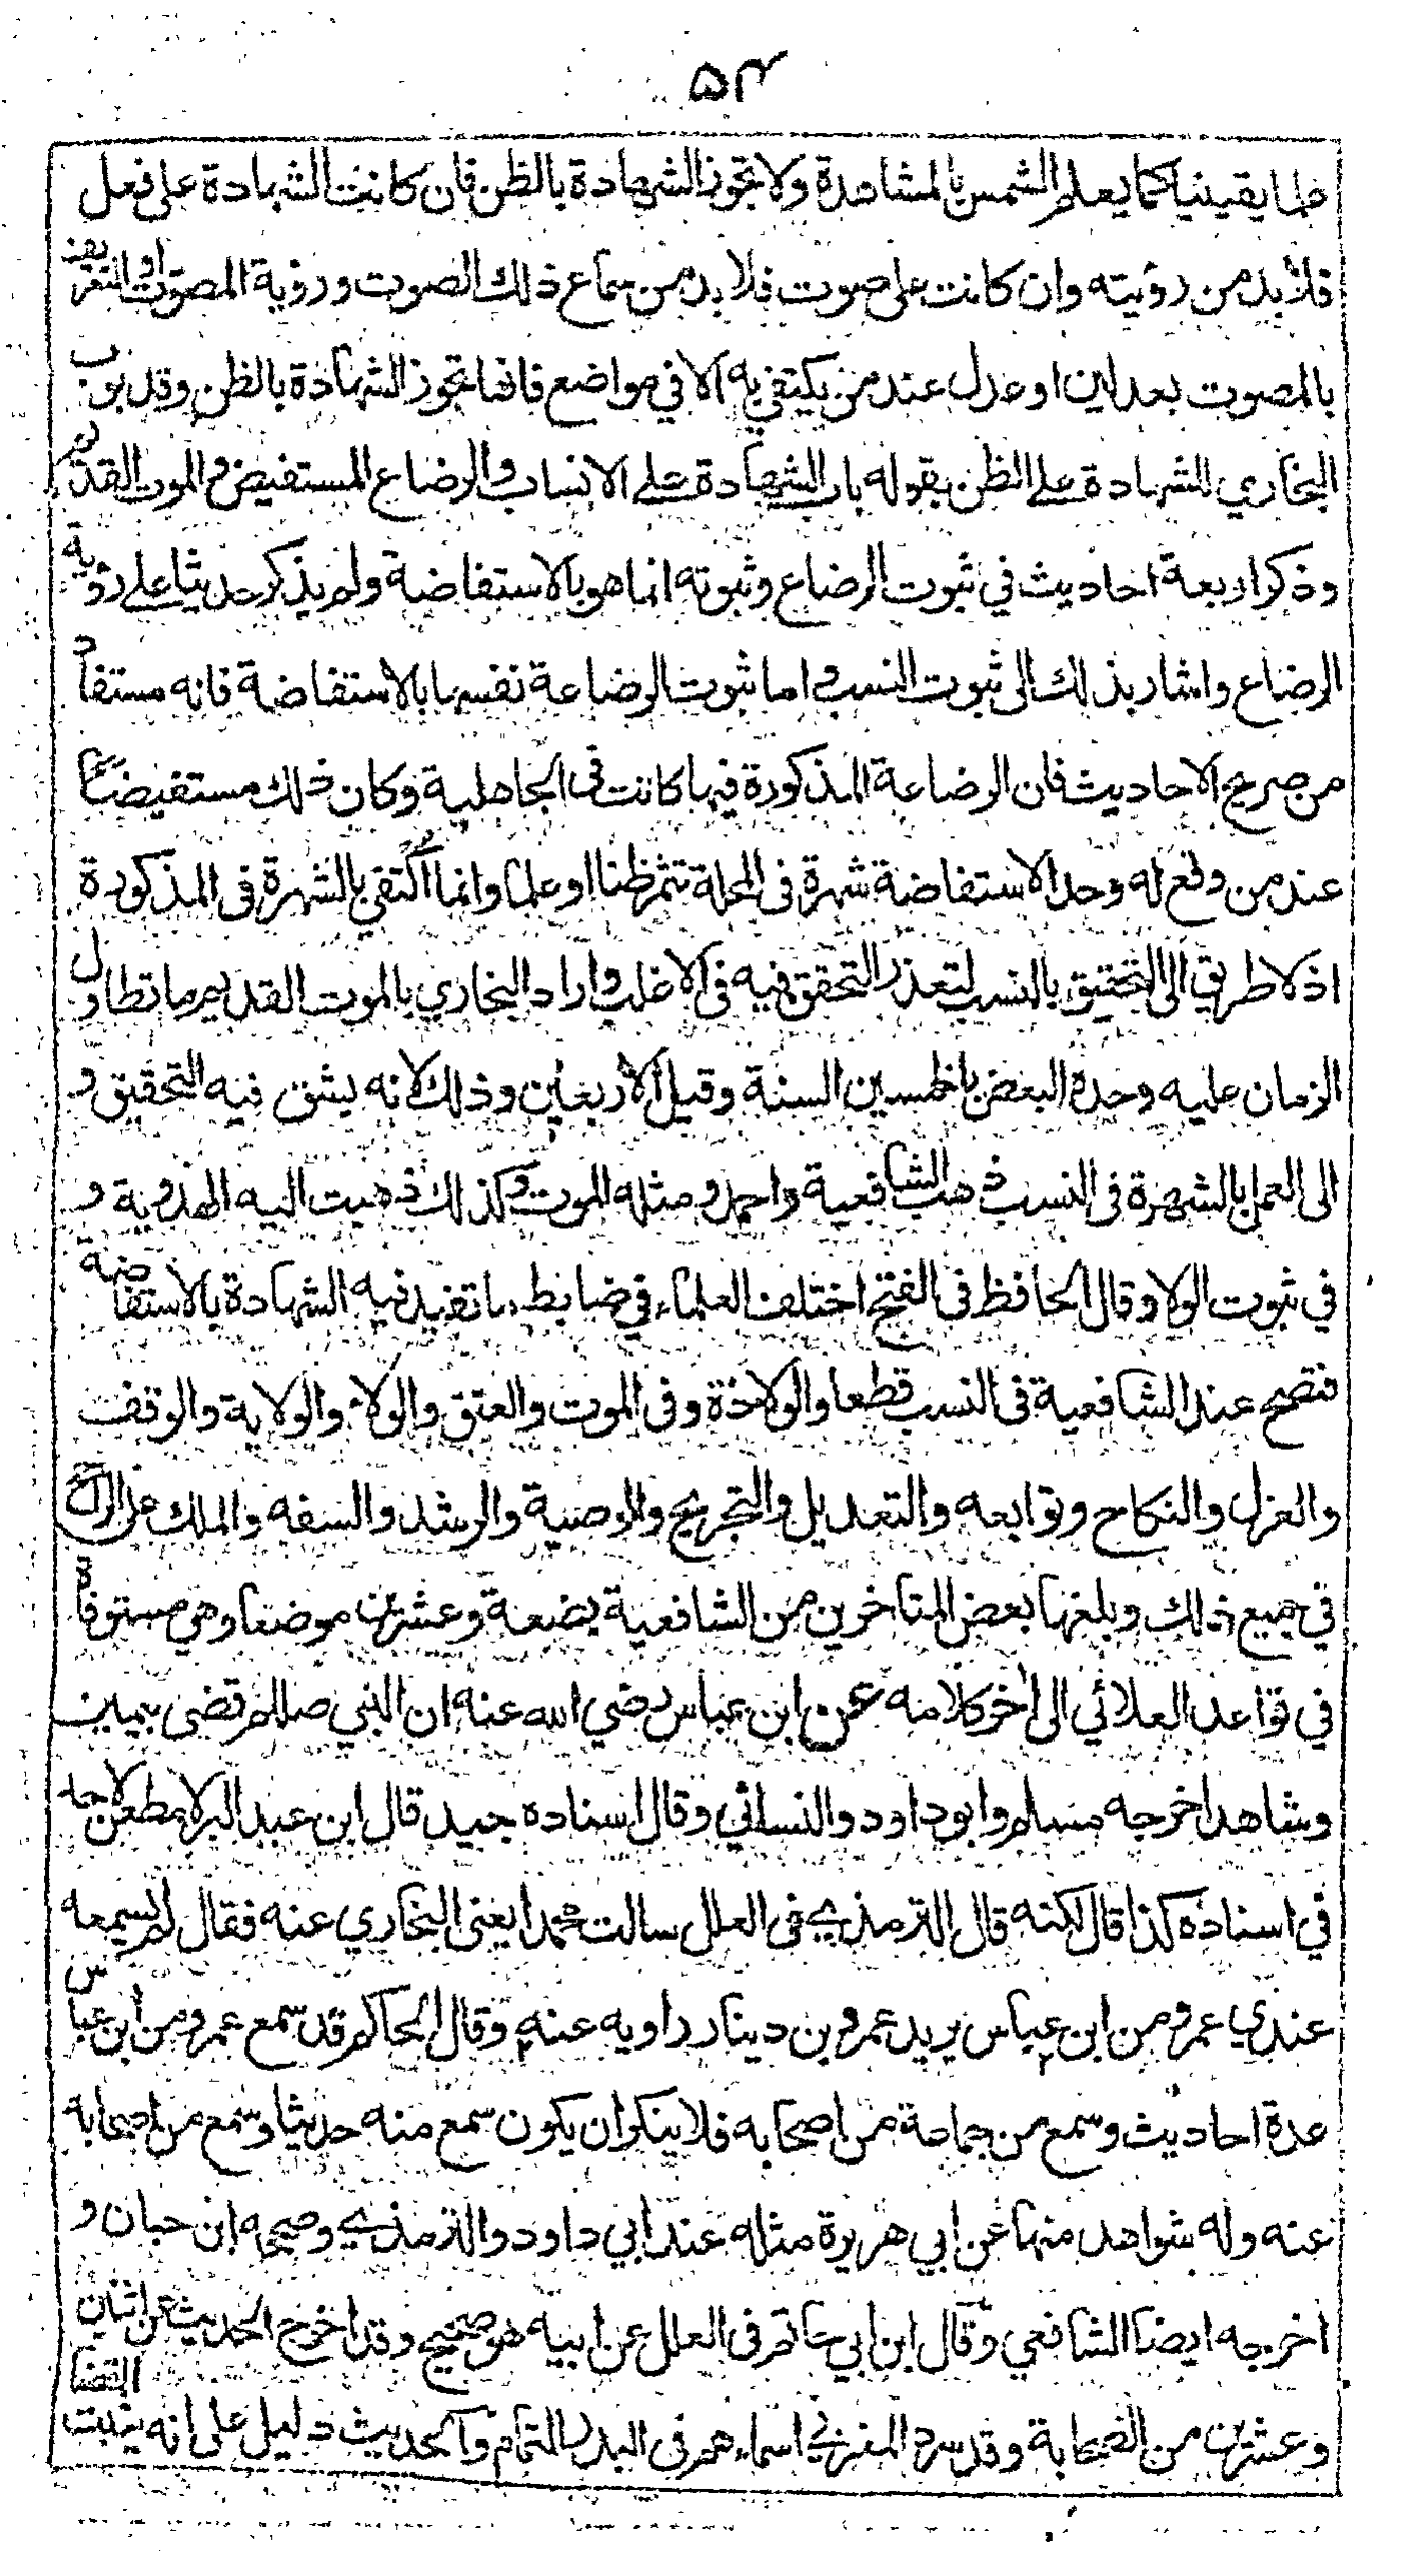 ٥٣
علما يقينيا كما يعلم الشمس بالمشاهدة ولا تجوز الشهادة بالظن فان كانت الشهادة على فعل
فلا بد من رؤيته وان كانت على صوت فلا بد من سماع ذلك الصوت ورؤية المصوت او التعريف
بالمصوت بعدلين او عدل عند من يكتفي به الا في مواضع فانها تجوز الشهادة بالظن وقد بوب
البخاري للشهادة على الظن بقوله باب الشهادة على الانساب والرضاع المستفيض والموت القديم
وذكر اربعة احاديث في ثبوت الرضاع وثبوته انما هو بالاستفاضة ولم يذكر حديثا على رؤية
الرضاع واشار بذلك الى ثبوت النسب واما ثبوت الرضاعة نفسها بالاستفاضة فانه مستفاد
من صريح الاحاديث فان الرضاعة المذكورة فيها كانت في الجاهلية وكان ذلك مستفيضا
عند من وقع له وحد الاستفاضة شهرة في المحلة تثمر ظنا او علما وانما اكتفي بالشهرة في المذكورة
اذ لا طريق الى التحقيق بالنسب لتعذر التحقق فيه في الاغلب واراد البخاري بالموت القديم ما تطاول
الزمان عليه وحده البعض بالخمسين السنة وقيل الاربعين وذلك لانه يشق فيه التحقيق و
الى العمل بالشهرة في النسب ذهب الشافعية واحمد ومثله الموت وكذلك ذهبت اليه الهدوية و
في ثبوت الولا وقال الحافظ في الفتح اختلف العلماء في ضابط ما تفيد فيه الشهادة بالاستفاضة
فتصح عند الشافعية في النسب قطعا والولادة وفي الموت والعتق والولاء والولاية والوقف
والعزل والنكاح وتوابعه والتعديل والتجريح والوصية والرشد والسفه والملك على الراجح
في جميع ذلك وبلغها بعض المتاخرين من الشافعية بضعة وعشرين موضعا وهي مستوفاة
في قواعد العلائي الى اخر كلامه عن ابن عباس رضي الله عنه ان النبي صللم قضى بيمين
وشاهد اخرجه مسلم وابو داود والنسائي وقال اسناده جيد قال ابن عبد البر لا مطعن لاحد
في اسناده كذا قال لكنه قال الترمذي في العلل سالت محمدا يعني البخاري عنه فقال لم يسمعه
عندي عمرو من ابن عباس يريد عمرو بن دينار راويه عنه وقال الحاكم قد سمع عمرو من ابن عباس
عدة احاديث وسمع من جماعة من اصحابه فلا ينكر ان يكون سمع منه حديثا وسمع من اصحابه
عنه وله شواهد منها عن ابي هريرة مثله عند ابي داود والترمذي وصححه ابن حبان و
اخرجه ايضا الشافعي وقال ابن ابي حاتم في العلل عن ابيه هو صحيح وقد اخرج الحديث عن اثنين
وعشرين من الصحابة وقد سرد المغربي اسماءهم في البدر التمام والحديث دليل على انه يثبت القضا